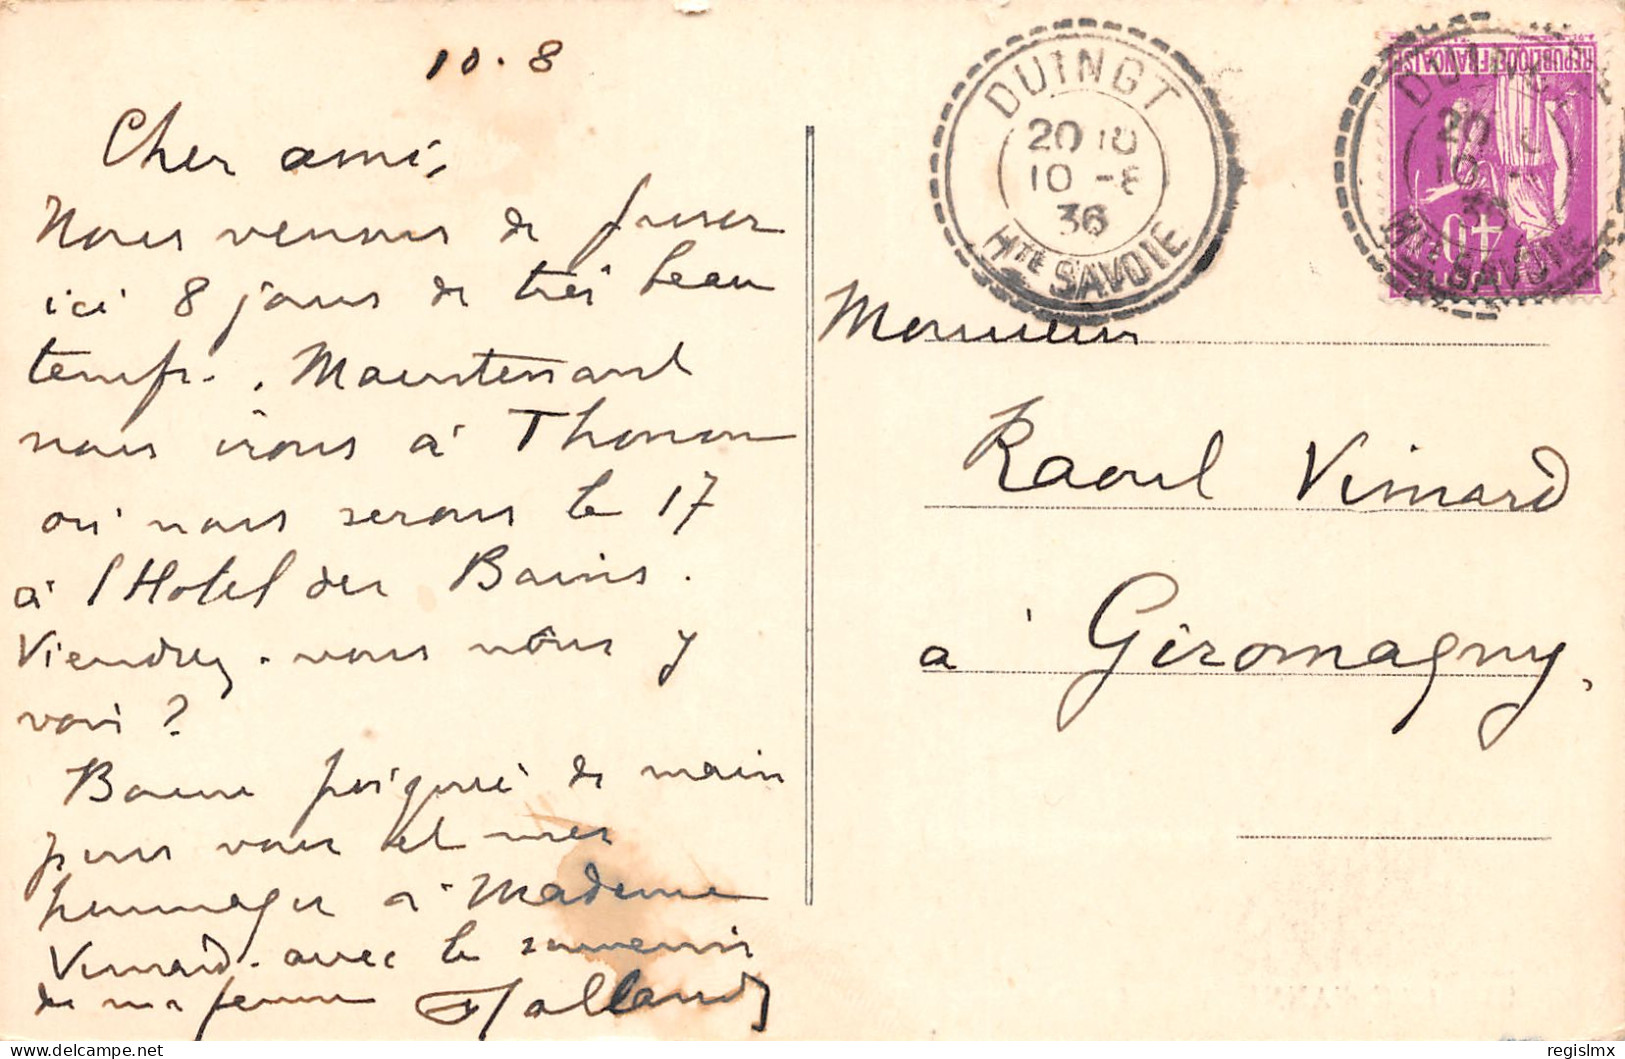 10.8
Cher ami,
Nous venons de passer
ici 8 jours de très beau
temps. Maintenant
nous irons à Thonon
où nous serons le 17
à l'Hotel des Bains.
Viendrez-vous nous y
voir ?
Bonne poignée de main
pour vous et mes
hommages à Madame
Vimard. avec le souvenir
de ma femme
DUINGT
20 10
10 -8
36
HTE SAVOIE
REPUBLIQUE FRANÇAISE
40
DUINGT
20
10
36
HTE SAVOIE
Monsieur
Raoul Vimard
à Giromagny,
regislmx